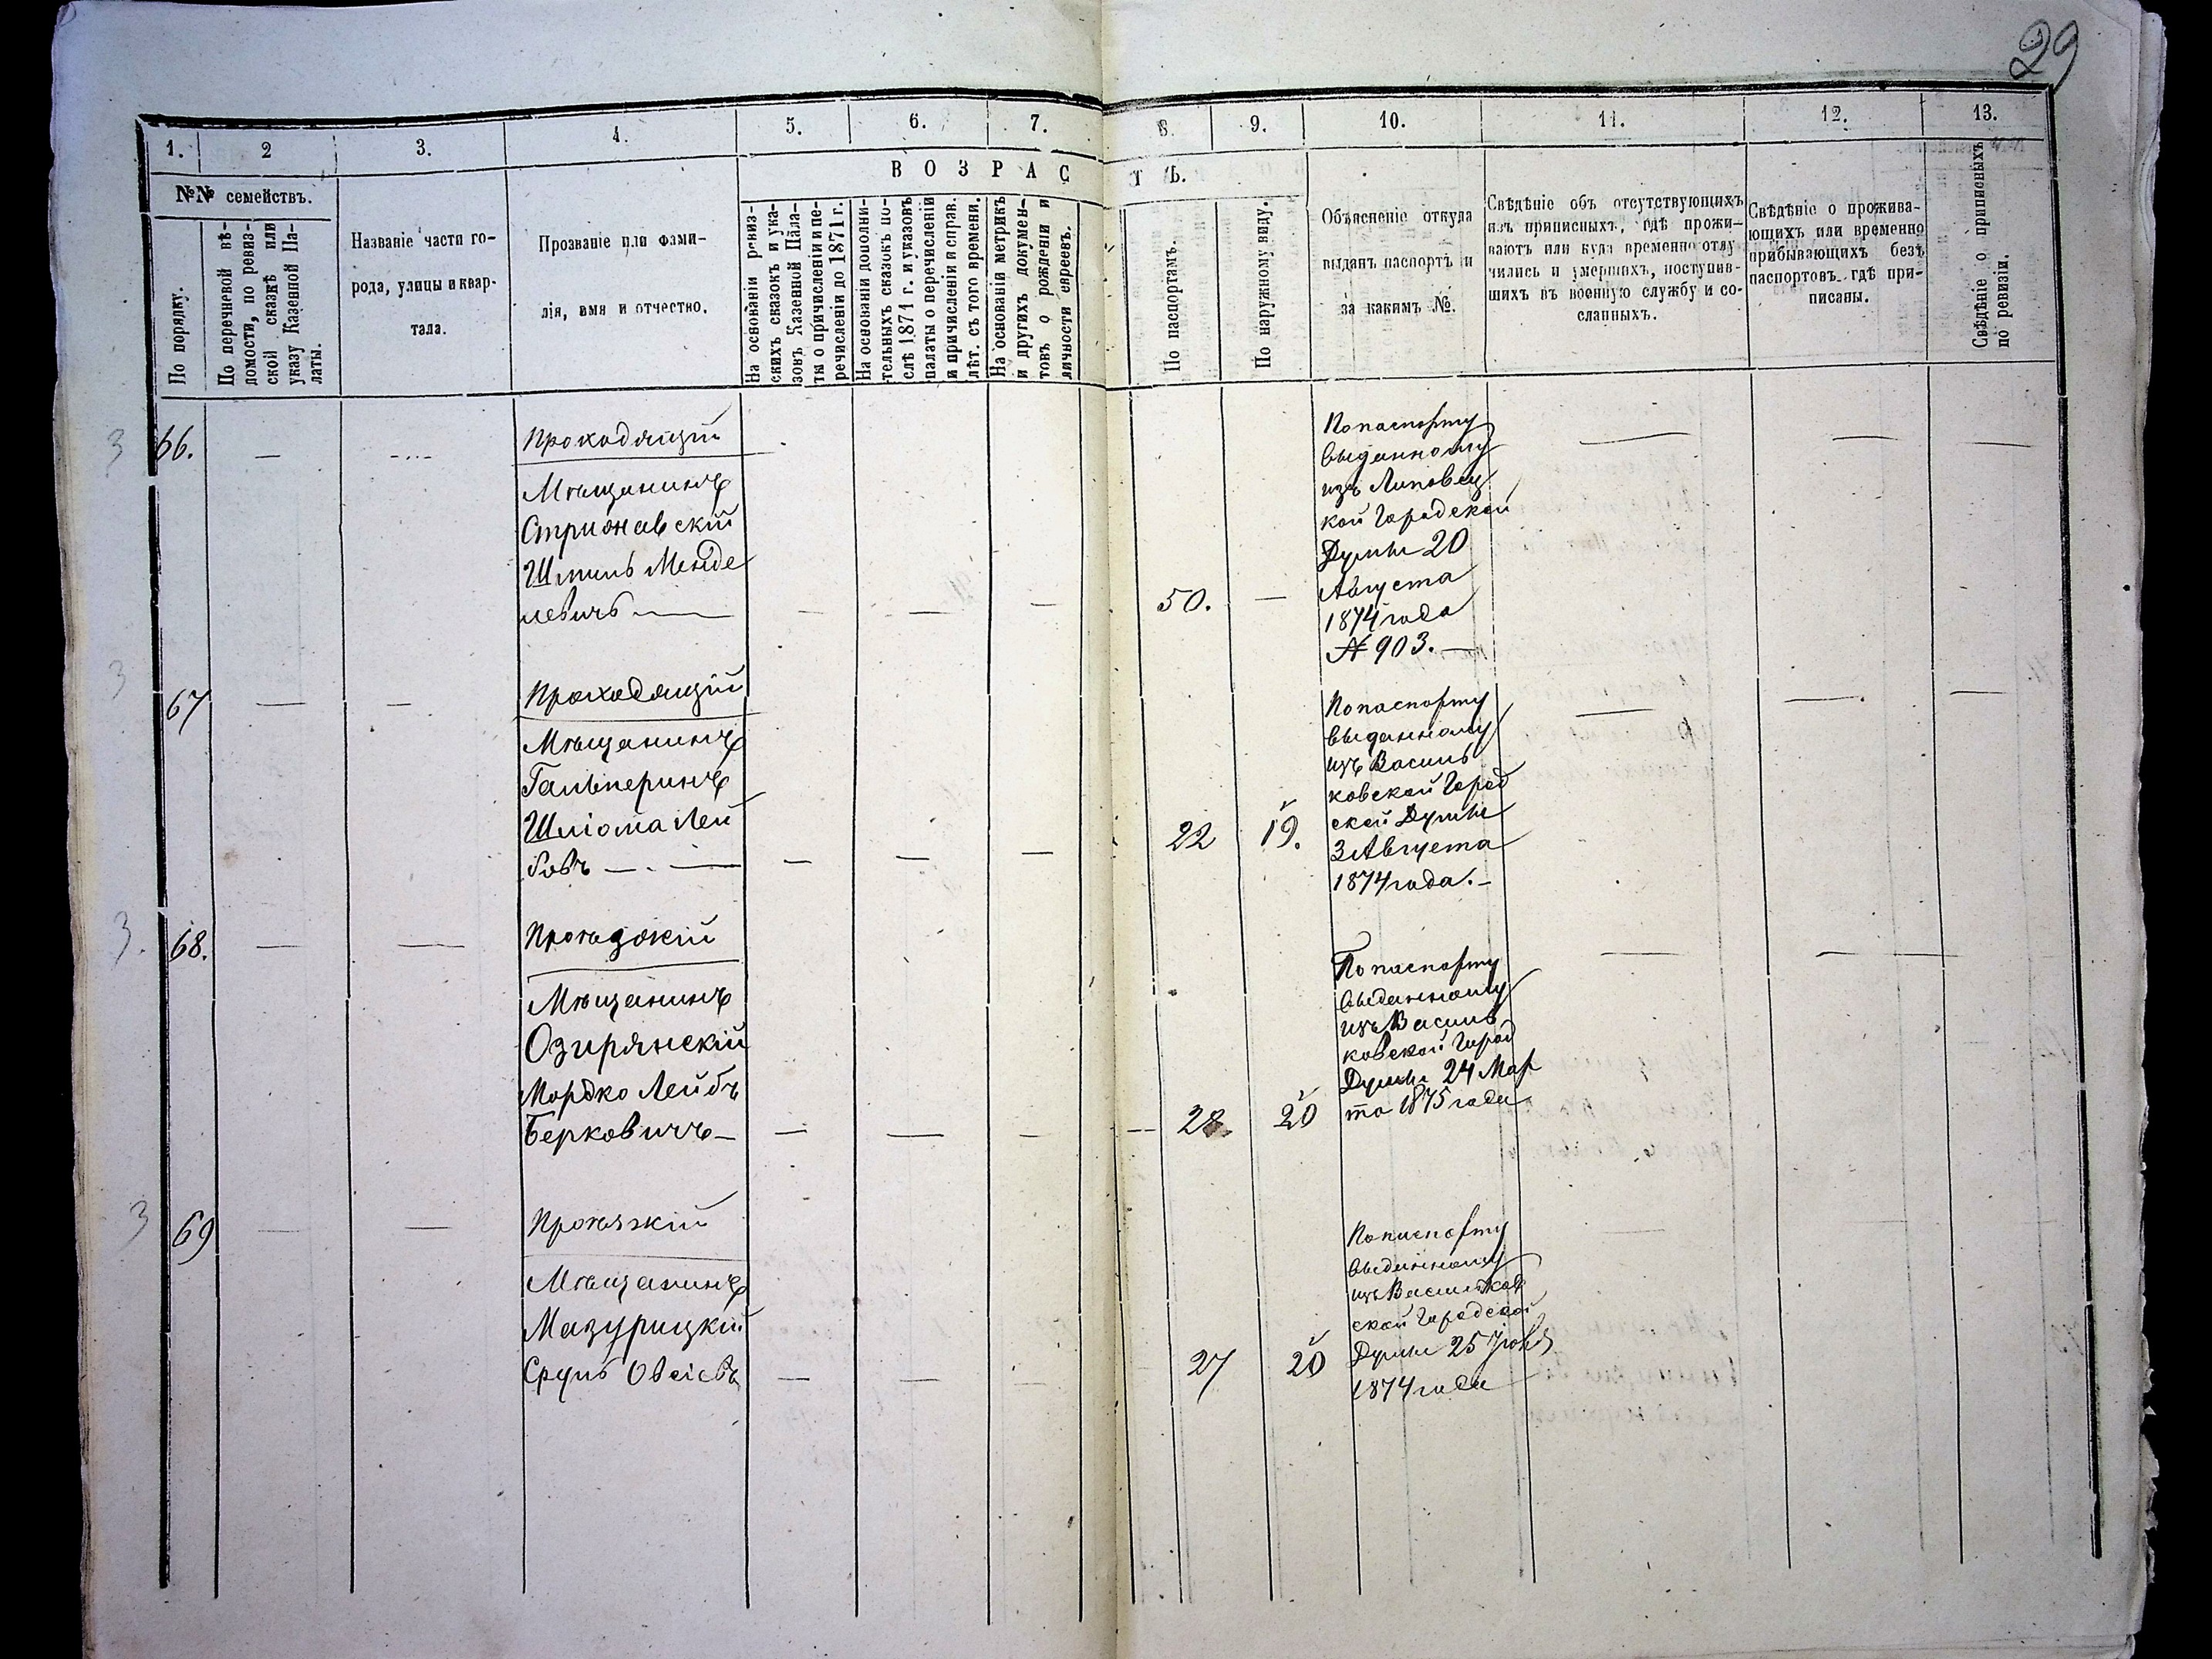 29
1. 2 3. 4. 5. 6. 7. 8. 9. 10. 11. 12. 13.
№№ семействъ.
По порядку.
По перечневой вѣ-
домости, по ревиз-
ской сказкѣ или
указу Казенной Па-
латы.
Названіе части го-
рода, улицы и квар-
тала.
Прозваніе или фами-
лія, имя и отчество.
ВОЗРАСТЪ.
На основаніи ревиз-
скихъ сказокъ и ука-
зовъ Казенной Пала-
ты о причисленіи и пе-
речисленіи до 1871 г.
На основаніи дополни-
тельныхъ сказокъ по-
слѣ 1871 г. и указовъ
палаты о перечисленіи
и причисленіи и справ.
лѣт. съ того времени.
На основаніи метрикъ
и другихъ докумен-
товъ о рожденіи и
личности евреевъ.
По паспортамъ.
По наружному виду.
Объясненіе откуда
выданъ паспортъ и
за какимъ №.
Свѣдѣніе объ отсутствующихъ
изъ приписныхъ, гдѣ прожи-
ваютъ или куда временно отлу
чились и умершихъ, поступив-
шихъ въ военную службу и со-
сланныхъ.
Свѣдѣніе о прожива-
ющихъ или временно
прибывающихъ безъ
паспортовъ гдѣ при-
писаны.
Свѣдѣніе о приписныхъ
по ревизіи.
3 66. — — Проходящій
Мѣщанинъ
Стрижавскій
Шмиль Менде
левичъ — — — — 50. —
По паспорту
выданному
изъ Липовец
кой Городской
Думы 20
Августа
1874 года
№ 903. —
3 67 — — Проходящій
Мѣщанинъ
Гальперинъ
Шліома Лей
бовъ — — — — 22 19.
По паспорту
выданному
изъ Василь
ковской Город
ской Думы
3 Августа
1874 года. —
3. 68. — — Проѣзжій
Мѣщанинъ
Озирянскій
Мордко Лейбъ
Берковичъ — — — — — 28. 20
По паспорту
выданному
изъ Василь
ковской Город
Думы 24 Мар
та 1875 года
3 69 — — Проѣзжій
Мѣщанинъ
Мазурицкій
Сруль Овсіевъ — — — 27 20
По паспорту
выданному
изъ Васильков
ской Городской
Думы 25
1874 года